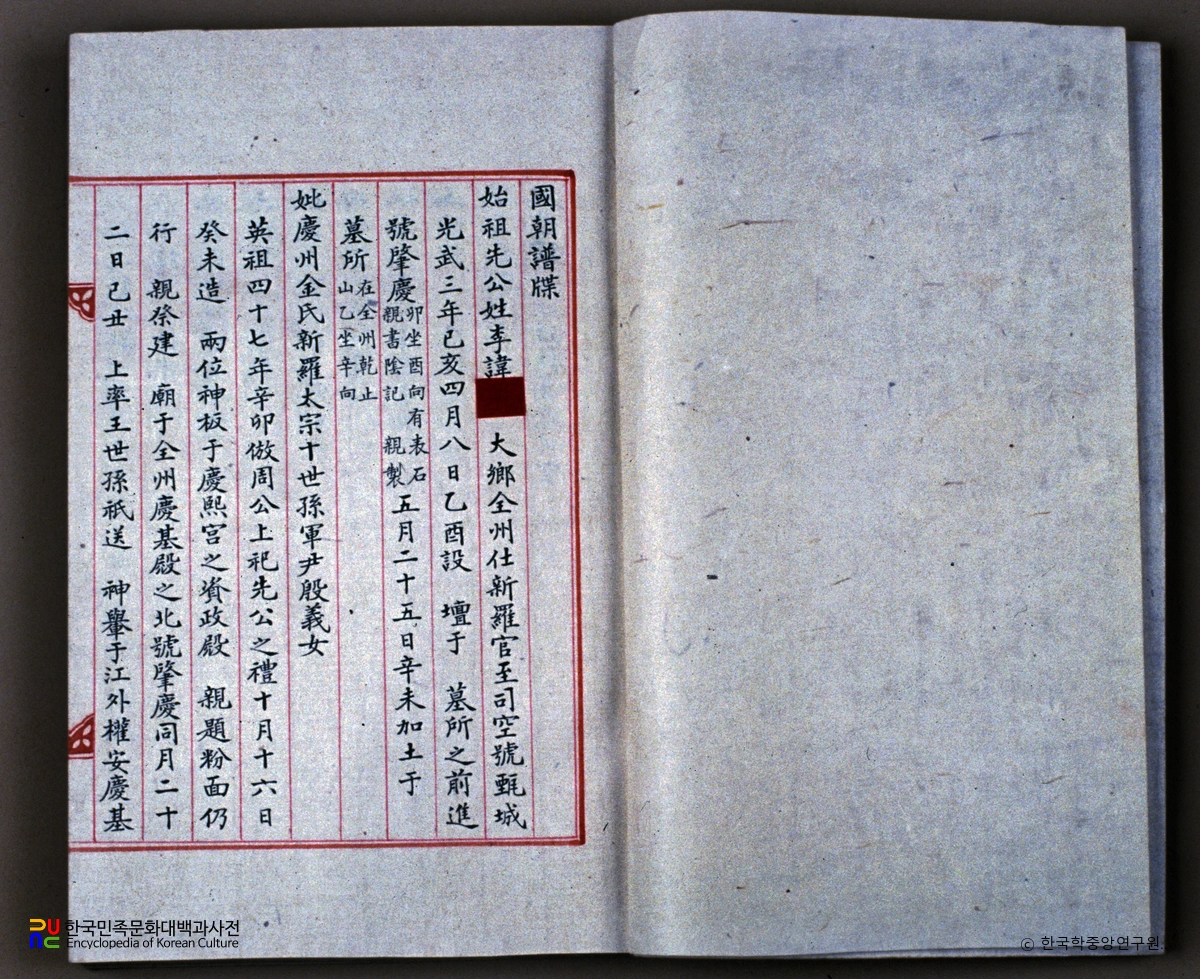 國朝譜牒
始祖先公姓李諱 大鄉全州仕新羅官至司空號甄城
光武三年己亥四月八日乙酉設 壇于 墓所之前進
號肇慶卯坐酉向有表石
親書陰記 親製五月二十五日辛未加土于
墓所在全州乾止
山乙坐辛向
妣慶州金氏新羅太宗十世孫軍尹殷義女
英祖四十七年辛卯倣周公上祀先公之禮十月十六日
癸未造 兩位神板于慶熙宮之資政殿 親題粉面仍
行 親祭建 廟于全州慶基殿之北號肇慶同月二十
二日己丑 上率王世孫祇送 神轝于江外權安慶基
한국민족문화대백과사전
Encyclopedia of Korean Culture
© 한국학중앙연구원